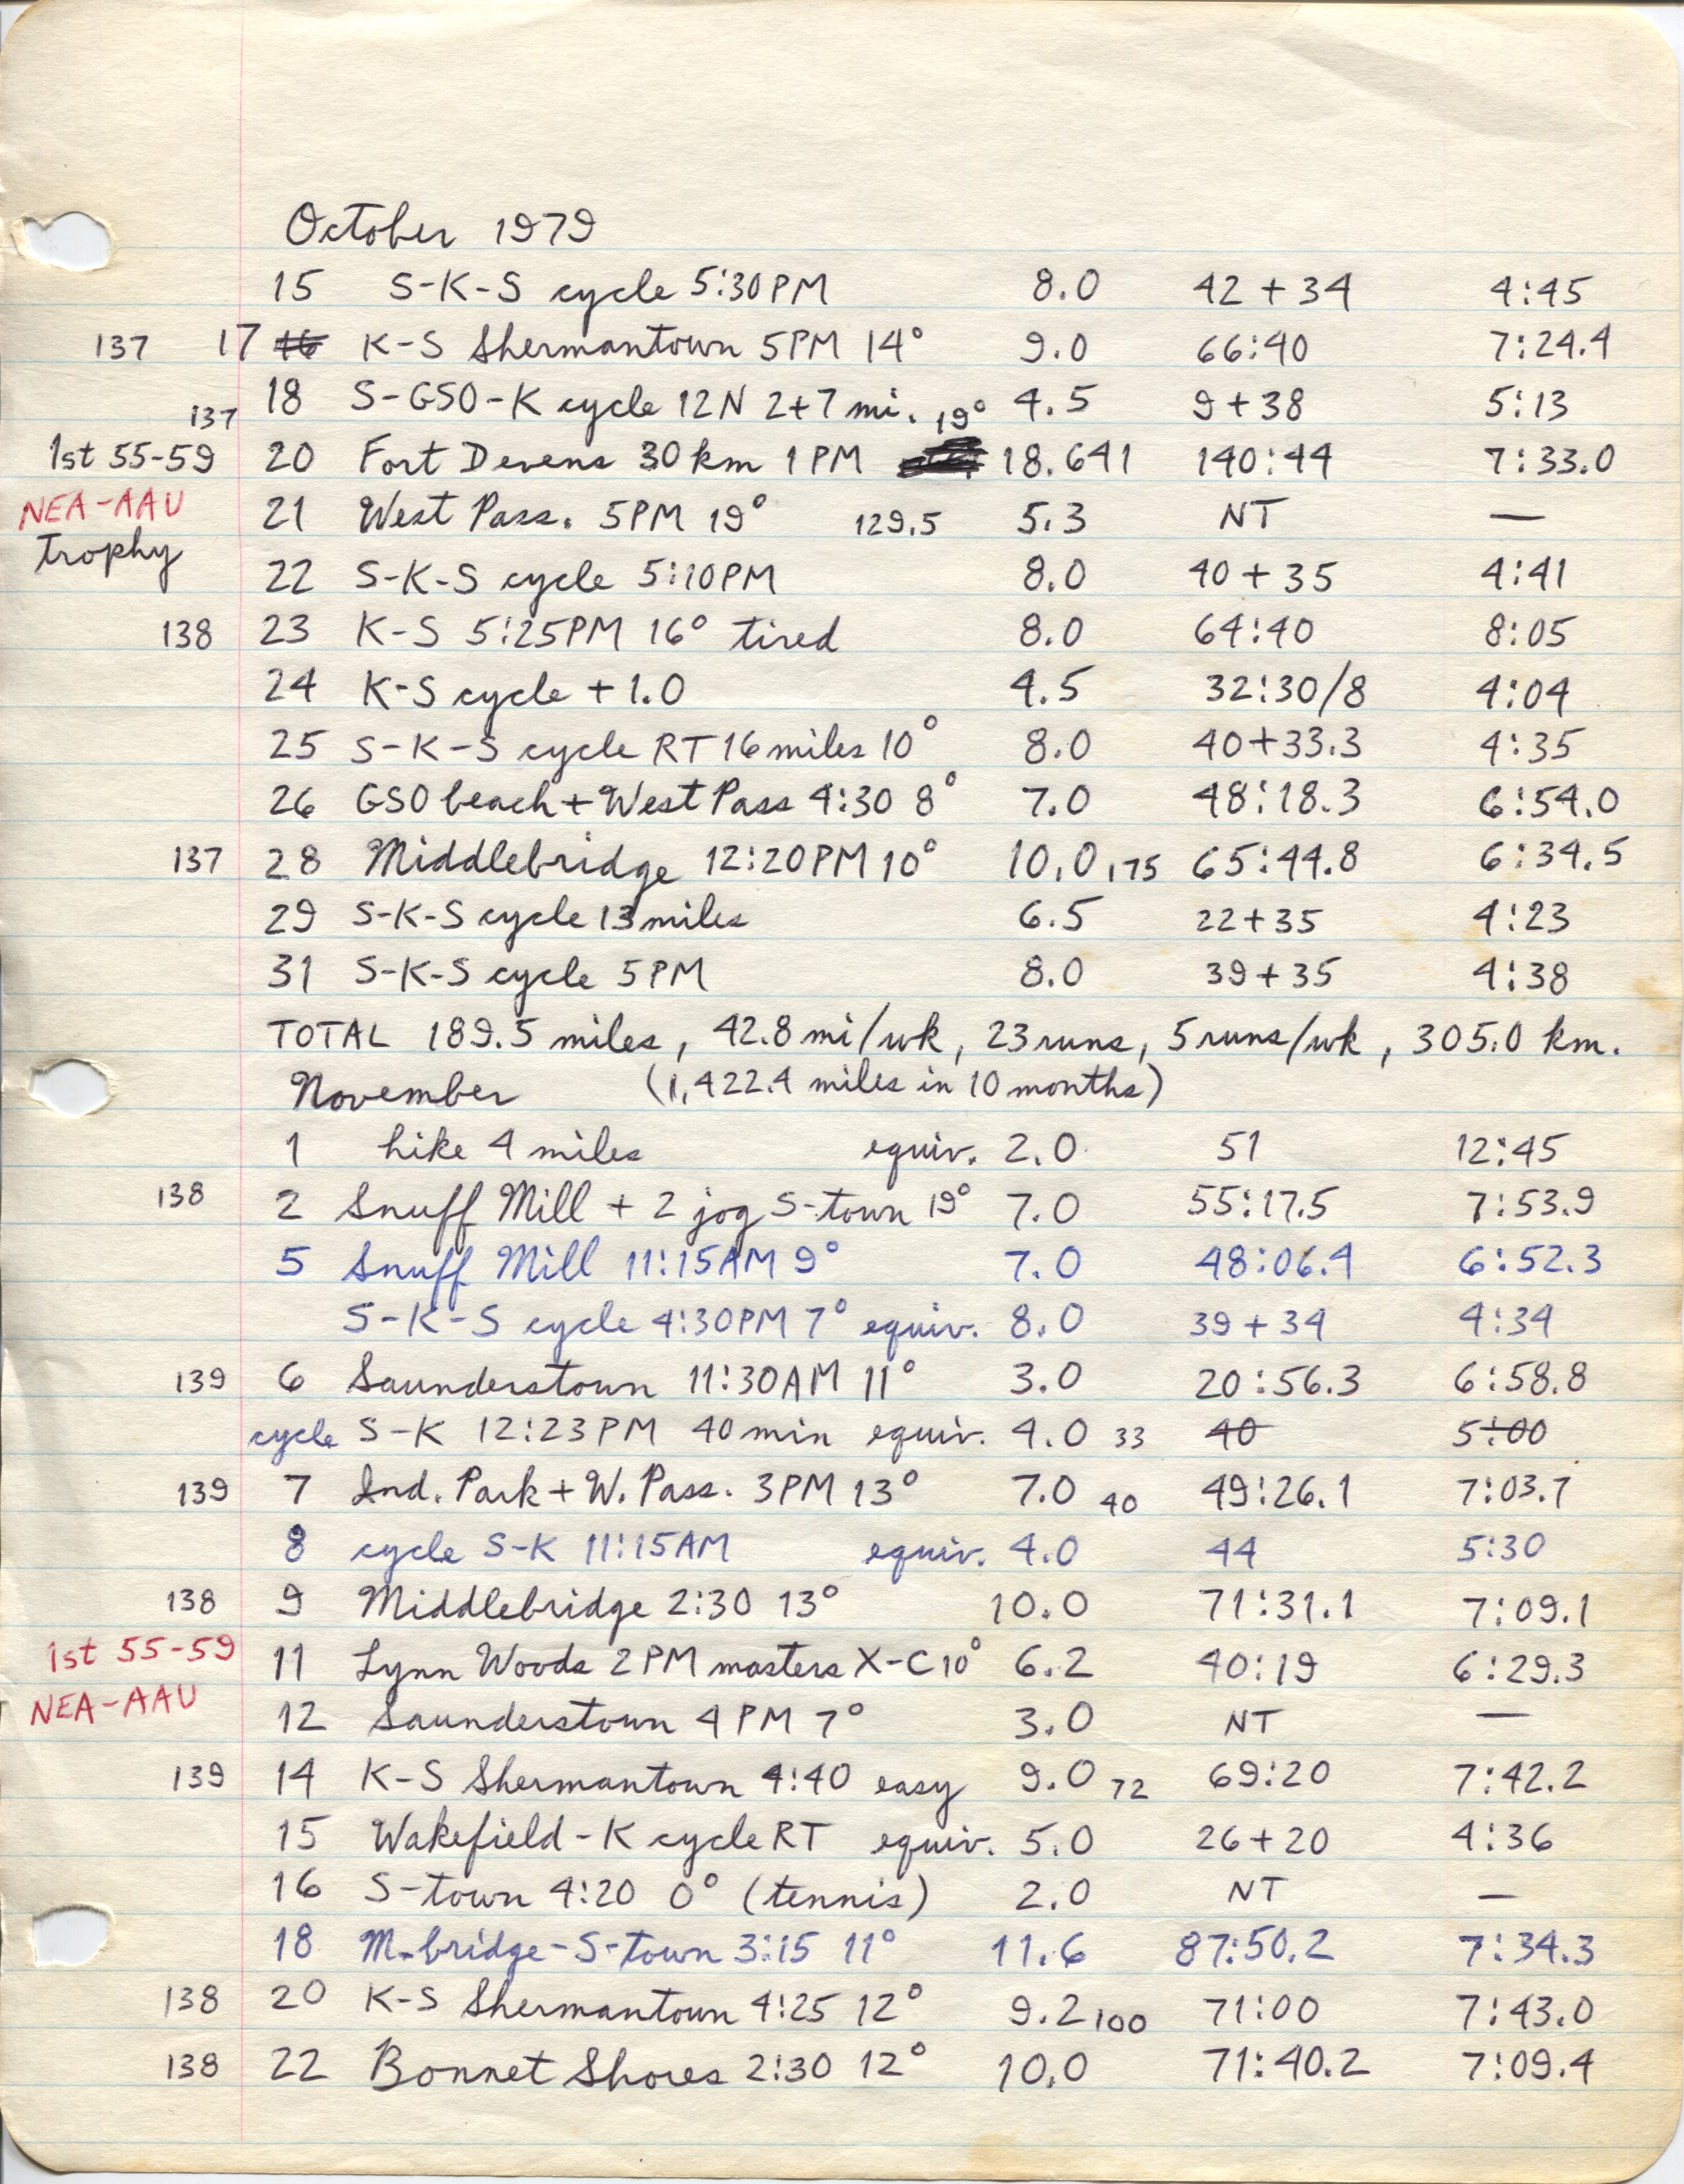 October 1979
15 S-K-S cycle 5:30PM 8.0 42 + 34 4:45
137 17 16 K-S Shermantown 5PM 14° 9.0 66:40 7:24.4
137 18 S-GSO-K cycle 12N 2+7 mi. 19° 4.5 9+38 5:13
1st 55-59 20 Fort Devens 30km 1PM 18.641 140:44 7:33.0
NEA-AAU 21 West Pass. 5PM 19° 129.5 5.3 NT —
trophy
22 S-K-S cycle 5:10PM 8.0 40+35 4:41
138 23 K-S 5:25PM 16° tired 8.0 64:40 8:05
24 K-S cycle + 1.0 4.5 32:30/8 4:04
25 S-K-S cycle RT 16 miles 10° 8.0 40+33.3 4:35
26 GSO beach + West Pass 4:30 8° 7.0 48:18.3 6:54.0
137 28 Middlebridge 12:20PM 10° 10.0 175 65:44.8 6:34.5
29 S-K-S cycle 13 miles 6.5 22+35 4:23
31 S-K-S cycle 5PM 8.0 39+35 4:38
TOTAL 189.5 miles, 42.8 mi/wk, 23 runs, 5 runs/wk, 305.0 km.
November (1,422.4 miles in 10 months)
1 hike 4 miles equiv. 2.0 51 12:45
138 2 Snuff Mill + 2 jog S-town 19° 7.0 55:17.5 7:53.9
5 Snuff Mill 11:15AM 9° 7.0 48:06.4 6:52.3
S-K-S cycle 4:30PM 7° equiv. 8.0 39+34 4:34
139 6 Saunderstown 11:30AM 11° 3.0 20:56.3 6:58.8
cycle S-K 12:23PM 40 min equiv. 4.0 33 40 5:00
139 7 Ind. Park + W. Pass. 3PM 13° 7.0 40 49:26.1 7:03.7
8 cycle S-K 11:15AM equiv. 4.0 44 5:30
138 9 Middlebridge 2:30 13° 10.0 71:31.1 7:09.1
1st 55-59 11 Lynn Woods 2PM masters X-C 10° 6.2 40:19 6:29.3
NEA-AAU 12 Saunderstown 4PM 7° 3.0 NT —
139 14 K-S Shermantown 4:40 easy 9.0 72 69:20 7:42.2
15 Wakefield-K cycle RT equiv. 5.0 26+20 4:36
16 S-town 4:20 0° (tennis) 2.0 NT —
18 M-bridge-S-town 3:15 11° 11.6 87:50.2 7:34.3
138 20 K-S Shermantown 4:25 12° 9.2 100 71:00 7:43.0
138 22 Bonnet Shores 2:30 12° 10.0 71:40.2 7:09.4